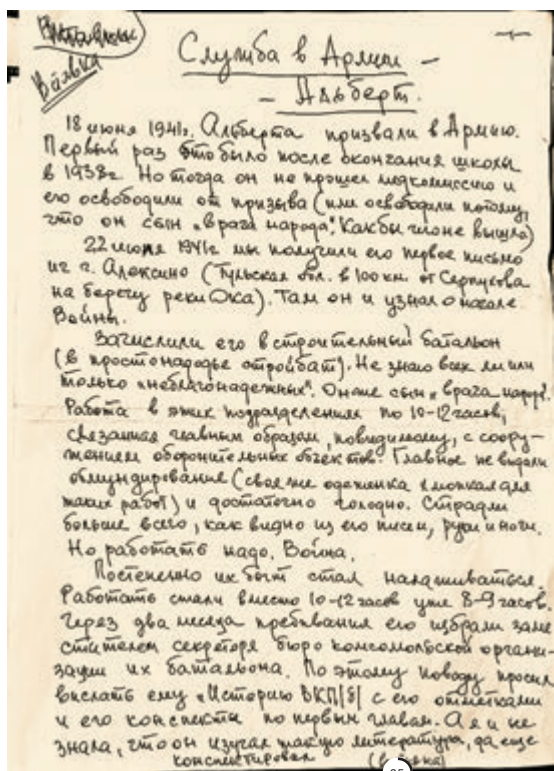 Вставка
Служба в Армии –
– Альберт.
18 июня 1941г. Альберта призвали в Армию.
Первый раз это было после окончания школы
в 1938г. Но тогда он не прошел медкомиссию и
его освободили от призыва (или освободили потому,
что он сын „врага народа". Как бы чего не вышло)
22 июня 1941г мы получили его первое письмо
из г. Алексино (Тульская обл. в 100км. от Серпухова
на берегу реки Ока). Там он и узнал о начале
Войны.
Зачислили его в строительный батальон
(в простонародье стройбат). Не знаю всех ли или
только „неблагонадежных". Он же сын „врага народа".
Работа в этих подразделениях по 10-12 часов,
связанная главным образом, повидимому, с соору-
жением оборонительных объектов. Главное не выдали
обмундирование (своя же одежонка для
таких работ) и достаточно голодно. Страдали
больше всего, как видно из его писем, руки и ноги.
Но работать надо. Война.
Постепенно их быт стал налаживаться.
Работать стали вместо 10-12 часов уже 8-9 часов.
Через два месяца пребывания его избрали заме
стителем секретаря бюро комсомольской органи-
зации их батальона. По этому поводу просил
выслать ему „Историю ВКП/б/ с его отметками
и его конспекты по первым главам. А я и не
знала, что он изучал такую литературу, да еще
конспектировал